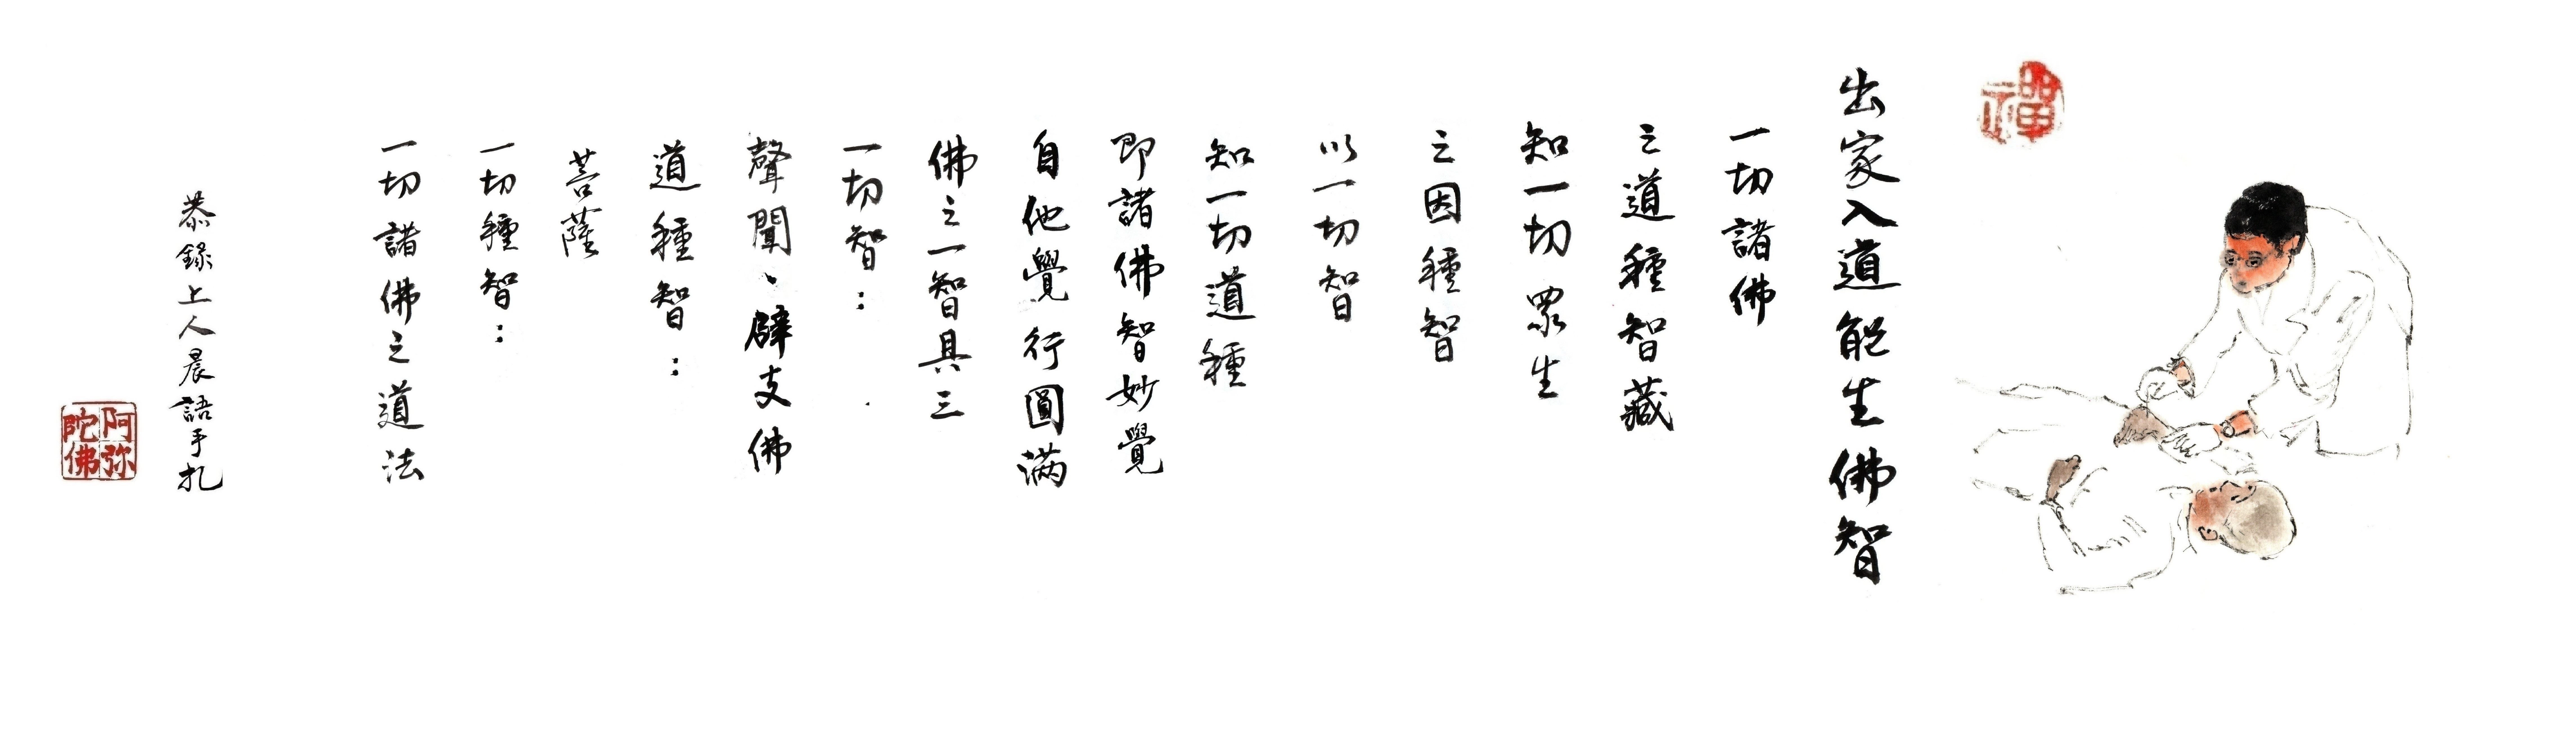 禪
出家入道能生佛智
一切諸佛
之道種智藏
知一切眾生
之因種智
以一切智
知一切道種
即諸佛智妙覺
自他覺行圓满
佛之一智具三
一切智：
聲聞、辟支佛
道種智：
菩薩
一切種智：
一切諸佛之道法
恭錄上人晨語手扎
阿弥
陀佛